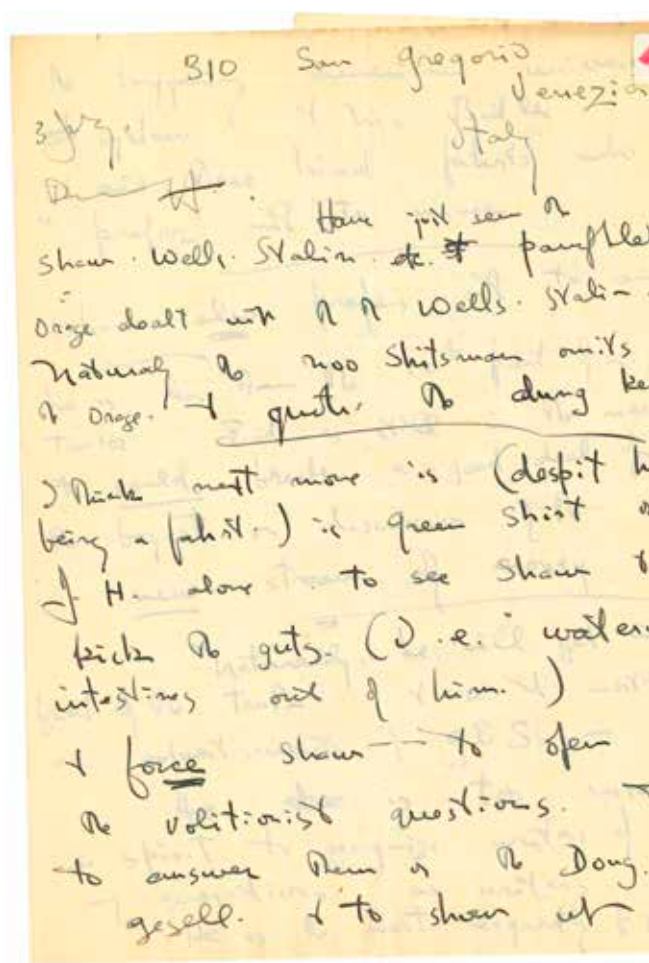 310 San Gregorio
Venezia
3 July.
Italy
Have just seen
Shaw. Wells. Stalin. etc. pamphlet
Orage dealt with Wells. Stalin
naturally noo Shitsman omits
Orage. + quote
I think next move is (despit
being a) is green shirt
J H. alone. to see Shaw +
kick guts. (i.e. waters
intestines out of him.)
+ force Shaw to open
volitionist questions.
to answer them Doug.
gesell. + to show up